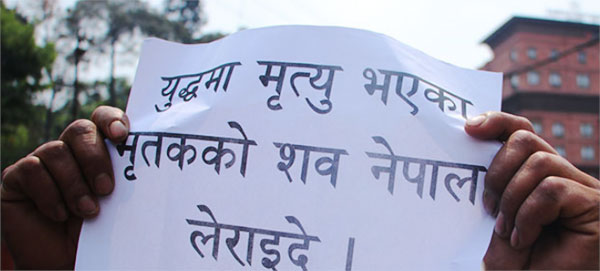 युद्धमा मृत्यु भएका
मृतकको शव नेपाल
लेराइदे ।